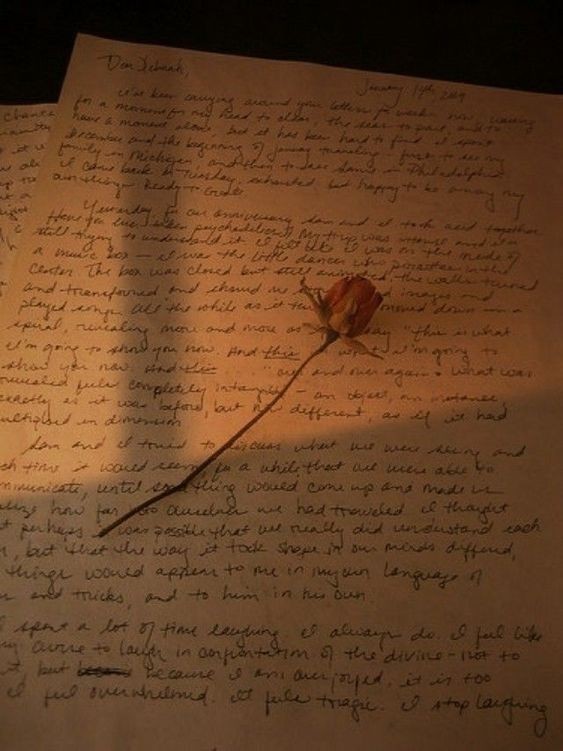 Dear Deborah,
January 14th, 2009
I've been carrying around your letters for weeks now, waiting
for a moment for my head to clear, the seas to part, and to
have a moment alone, but it has been hard to find. I spent
December and the beginning of January traveling - first to see my
family in Michigan, and then to see Sam's in Philadelphia
I came back on Tuesday, exhausted, but happy to be among my
own things. Ready to
Yesterday, for our anniversary Sam and I took acid together
Have you ever taken psychedelics? My trip was intense and I'm
still trying to understand it. I felt like I was on the inside of
a music box - I was the little dancer who pirouettes in the
center. The box was closed but still animated, the walls turned
and transformed and showed me images and
played songs. All the while as it moved down in a
spiral, revealing more and more as say "this is what
I'm going to show you now. And this is what I'm going to
show you now. And this " over and over again. What was
revealed felt completely intangible - an object, an instance,
exactly as it was before, but now different, as if it had
multiplied in dimension
Sam and I tried to discuss what we were seeing and
each time it would seem for a while that we were able to
communicate, until something would come up and made us
realize how far into ourselves we had traveled. I thought
perhaps it was possible that we really did understand each
, but that the way it took shape in our minds differed,
things would appear to me in my own language of
and tricks, and to him in his own.
I spent a lot of time laughing. I always do. I feel like
to laugh in confrontation of the divine - not to
it, but because I am overjoyed. it is too
I feel overwhelmed. It feels tragic. I stop laughing
chance